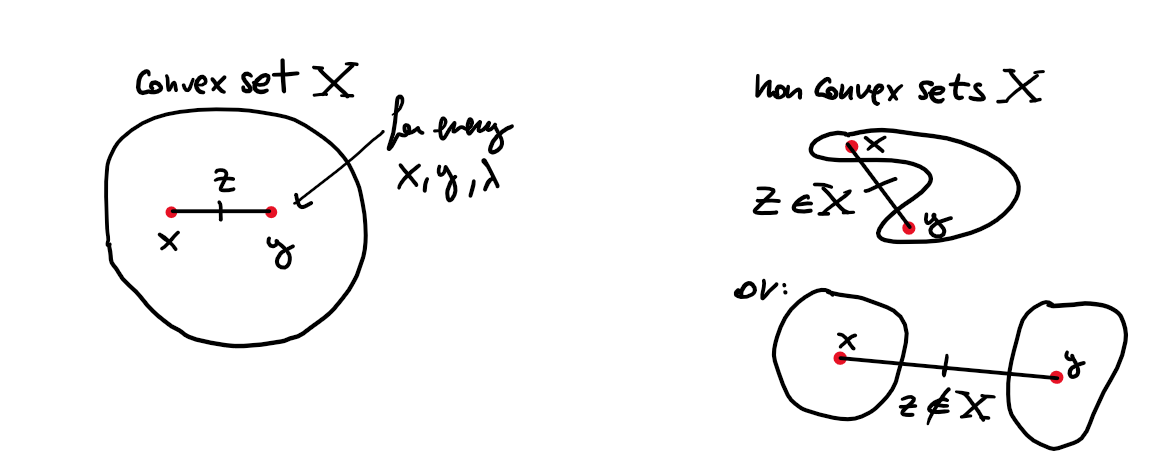 Convex set X
for every
x, y, λ
z
x
y
non convex sets X
x
z ∈ X
y
or:
x
y
z ∉ X